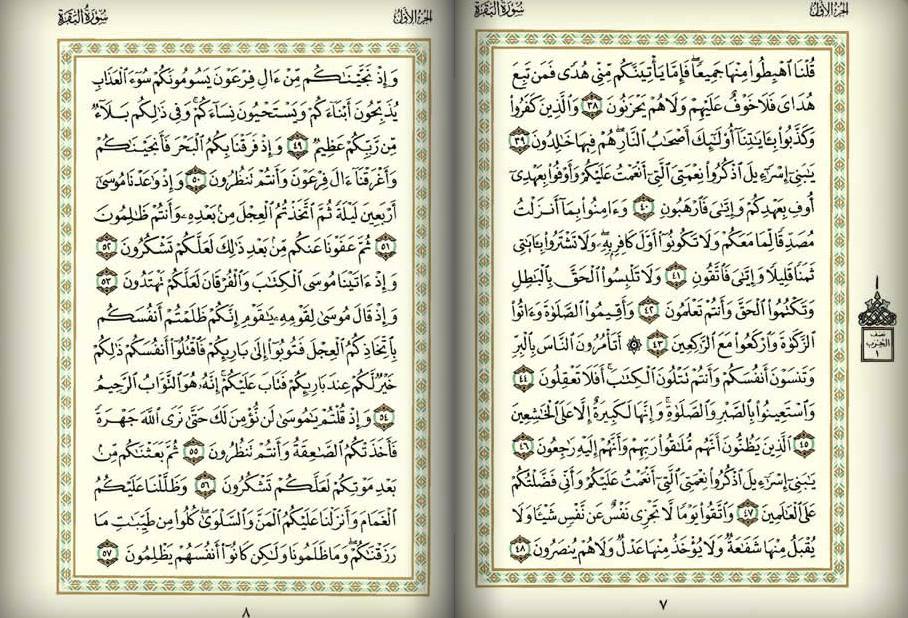 سُورَةُ البَقَرَةِ
الجُزْءُ الأَوَّلُ
قُلْنَا ٱهْبِطُوا۟ مِنْهَا جَمِيعًا ۖ فَإِمَّا يَأْتِيَنَّكُم مِّنِّى هُدًى فَمَن تَبِعَ
هُدَاىَ فَلَا خَوْفٌ عَلَيْهِمْ وَلَا هُمْ يَحْزَنُونَ ٣٨ وَٱلَّذِينَ كَفَرُوا۟
وَكَذَّبُوا۟ بِـَٔايَـٰتِنَآ أُو۟لَـٰٓئِكَ أَصْحَـٰبُ ٱلنَّارِ ۖ هُمْ فِيهَا خَـٰلِدُونَ ٣٩
يَـٰبَنِىٓ إِسْرَٰٓءِيلَ ٱذْكُرُوا۟ نِعْمَتِىَ ٱلَّتِىٓ أَنْعَمْتُ عَلَيْكُمْ وَأَوْفُوا۟ بِعَهْدِىٓ
أُوفِ بِعَهْدِكُمْ وَإِيَّـٰىَ فَٱرْهَبُونِ ٤٠ وَءَامِنُوا۟ بِمَآ أَنزَلْتُ
مُصَدِّقًا لِّمَا مَعَكُمْ وَلَا تَكُونُوٓا۟ أَوَّلَ كَافِرٍۭ بِهِۦ ۖ وَلَا تَشْتَرُوا۟ بِـَٔايَـٰتِى
ثَمَنًا قَلِيلًا وَإِيَّـٰىَ فَٱتَّقُونِ ٤١ وَلَا تَلْبِسُوا۟ ٱلْحَقَّ بِٱلْبَـٰطِلِ
وَتَكْتُمُوا۟ ٱلْحَقَّ وَأَنتُمْ تَعْلَمُونَ ٤٢ وَأَقِيمُوا۟ ٱلصَّلَوٰةَ وَءَاتُوا۟
ٱلزَّكَوٰةَ وَٱرْكَعُوا۟ مَعَ ٱلرَّٰكِعِينَ ٤٣ ۞ أَتَأْمُرُونَ ٱلنَّاسَ بِٱلْبِرِّ
وَتَنسَوْنَ أَنفُسَكُمْ وَأَنتُمْ تَتْلُونَ ٱلْكِتَـٰبَ ۚ أَفَلَا تَعْقِلُونَ ٤٤
وَٱسْتَعِينُوا۟ بِٱلصَّبْرِ وَٱلصَّلَوٰةِ ۚ وَإِنَّهَا لَكَبِيرَةٌ إِلَّا عَلَى ٱلْخَـٰشِعِينَ
٤٥ ٱلَّذِينَ يَظُنُّونَ أَنَّهُم مُّلَـٰقُوا۟ رَبِّهِمْ وَأَنَّهُمْ إِلَيْهِ رَٰجِعُونَ ٤٦
يَـٰبَنِىٓ إِسْرَٰٓءِيلَ ٱذْكُرُوا۟ نِعْمَتِىَ ٱلَّتِىٓ أَنْعَمْتُ عَلَيْكُمْ وَأَنِّى فَضَّلْتُكُمْ
عَلَى ٱلْعَـٰلَمِينَ ٤٧ وَٱتَّقُوا۟ يَوْمًا لَّا تَجْزِى نَفْسٌ عَن نَّفْسٍ شَيْـًٔا وَلَا
يُقْبَلُ مِنْهَا شَفَـٰعَةٌ وَلَا يُؤْخَذُ مِنْهَا عَدْلٌ وَلَا هُمْ يُنصَرُونَ ٤٨
٧
نصف
الحزب
١
سُورَةُ البَقَرَةِ
الجُزْءُ الأَوَّلُ
وَإِذْ نَجَّيْنَـٰكُم مِّنْ ءَالِ فِرْعَوْنَ يَسُومُونَكُمْ سُوٓءَ ٱلْعَذَابِ
يُذَبِّحُونَ أَبْنَآءَكُمْ وَيَسْتَحْيُونَ نِسَآءَكُمْ ۚ وَفِى ذَٰلِكُم بَلَآءٌ
مِّن رَّبِّكُمْ عَظِيمٌ ٤٩ وَإِذْ فَرَقْنَا بِكُمُ ٱلْبَحْرَ فَأَنجَيْنَـٰكُمْ
وَأَغْرَقْنَآ ءَالَ فِرْعَوْنَ وَأَنتُمْ تَنظُرُونَ ٥٠ وَإِذْ وَٰعَدْنَا مُوسَىٰٓ
أَرْبَعِينَ لَيْلَةً ثُمَّ ٱتَّخَذْتُمُ ٱلْعِجْلَ مِنۢ بَعْدِهِۦ وَأَنتُمْ ظَـٰلِمُونَ
٥١ ثُمَّ عَفَوْنَا عَنكُم مِّنۢ بَعْدِ ذَٰلِكَ لَعَلَّكُمْ تَشْكُرُونَ ٥٢
وَإِذْ ءَاتَيْنَا مُوسَى ٱلْكِتَـٰبَ وَٱلْفُرْقَانَ لَعَلَّكُمْ تَهْتَدُونَ ٥٣
وَإِذْ قَالَ مُوسَىٰ لِقَوْمِهِۦ يَـٰقَوْمِ إِنَّكُمْ ظَلَمْتُمْ أَنفُسَكُم
بِٱتِّخَاذِكُمُ ٱلْعِجْلَ فَتُوبُوٓا۟ إِلَىٰ بَارِئِكُمْ فَٱقْتُلُوٓا۟ أَنفُسَكُمْ ذَٰلِكُمْ
خَيْرٌ لَّكُمْ عِندَ بَارِئِكُمْ فَتَابَ عَلَيْكُمْ ۚ إِنَّهُۥ هُوَ ٱلتَّوَّابُ ٱلرَّحِيمُ
٥٤ وَإِذْ قُلْتُمْ يَـٰمُوسَىٰ لَن نُّؤْمِنَ لَكَ حَتَّىٰ نَرَى ٱللَّهَ جَهْرَةً
فَأَخَذَتْكُمُ ٱلصَّـٰعِقَةُ وَأَنتُمْ تَنظُرُونَ ٥٥ ثُمَّ بَعَثْنَـٰكُم مِّنۢ
بَعْدِ مَوْتِكُمْ لَعَلَّكُمْ تَشْكُرُونَ ٥٦ وَظَلَّلْنَا عَلَيْكُمُ
ٱلْغَمَامَ وَأَنزَلْنَا عَلَيْكُمُ ٱلْمَنَّ وَٱلسَّلْوَىٰ ۖ كُلُوا۟ مِن طَيِّبَـٰتِ مَا
رَزَقْنَـٰكُمْ ۖ وَمَا ظَلَمُونَا وَلَـٰكِن كَانُوٓا۟ أَنفُسَهُمْ يَظْلِمُونَ ٥٧
٨